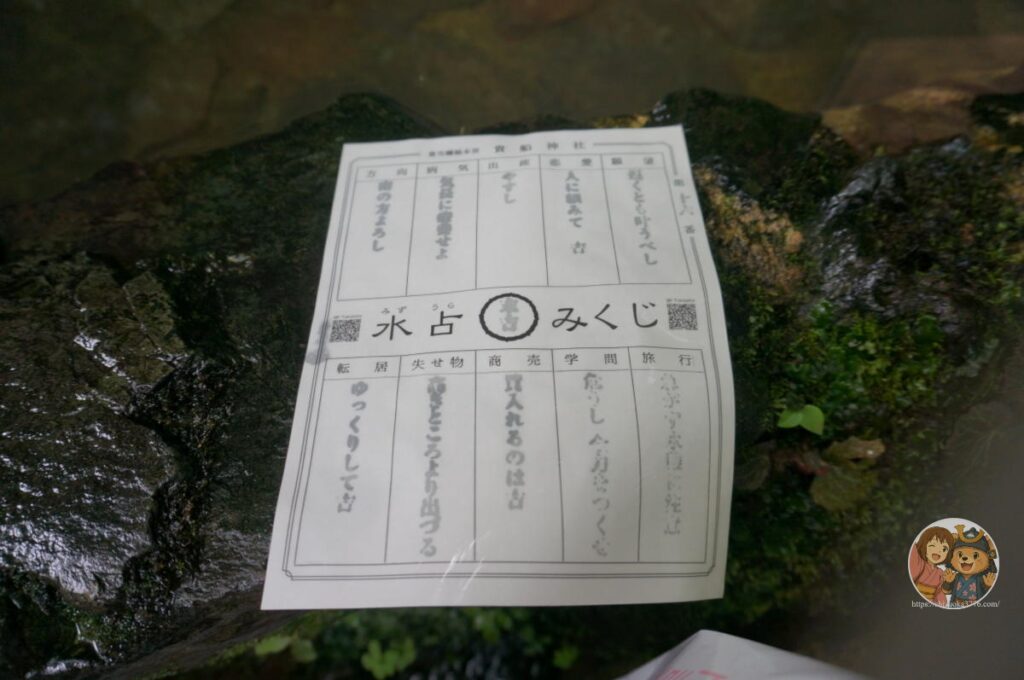 貴船神社
第十六番
願望
遅くとも叶うべし
恋愛
人に頼みて 吉
出産
やすし
病気
気長に療養せよ
方向
南の方よろし
みず うら
水占 みくじ
旅行
学問
危うし 全力をつくせ
商売
買入れるのは吉
失せ物
高きところより出づる
転居
ゆっくりして吉